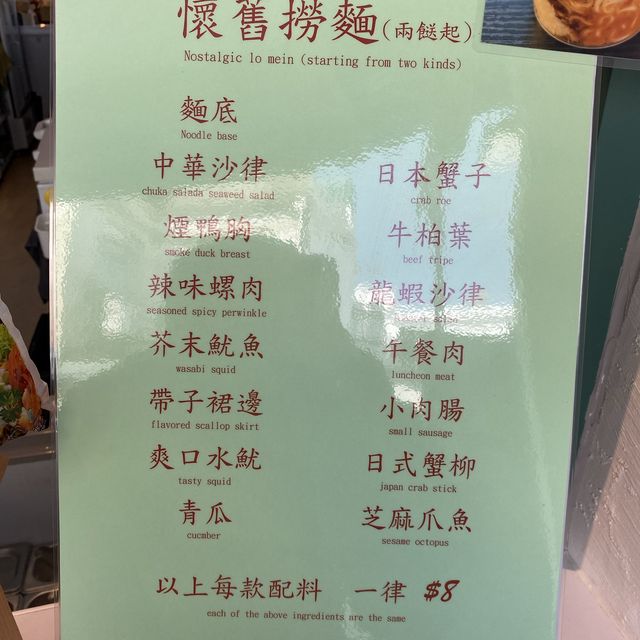 懷舊撈麵(兩餸起)
Nostalgic lo mein (starting from two kinds)
麵底
Noodle base
中華沙律
chuka salada seaweed salad
日本蟹子
crab roe
煙鴨胸
smoke duck breast
牛柏葉
beef tripe
辣味螺肉
seasoned spicy perwinkle
龍蝦沙律
芥末魷魚
wasabi squid
午餐肉
luncheon meat
帶子裙邊
flavored scallop skirt
小肉腸
small sausage
爽口水魷
tasty squid
日式蟹柳
japan crab stick
青瓜
cucmber
芝麻爪魚
sesame octopus
以上每款配料 一律 $8
each of the above ingredients are the same